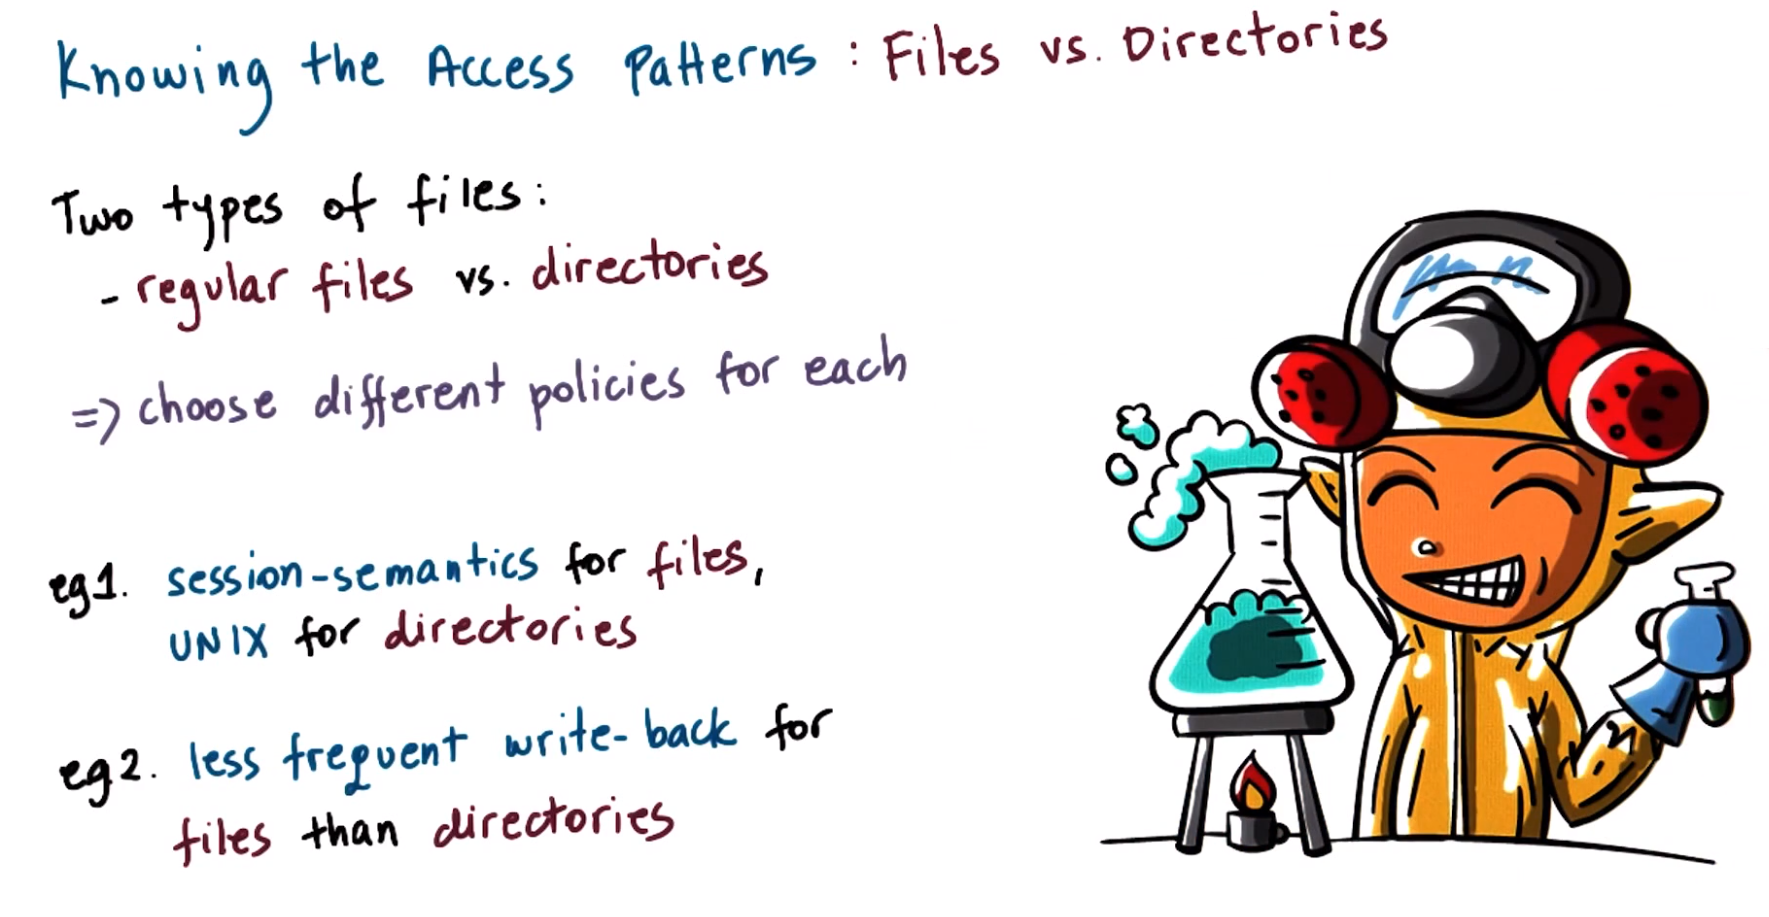 Knowing the Access Patterns : Files vs. Directories
Two types of files:
- regular files vs. directories
=> choose different policies for each
eg1. session-semantics for files,
UNIX for directories
eg2. less frequent write-back for
files than directories